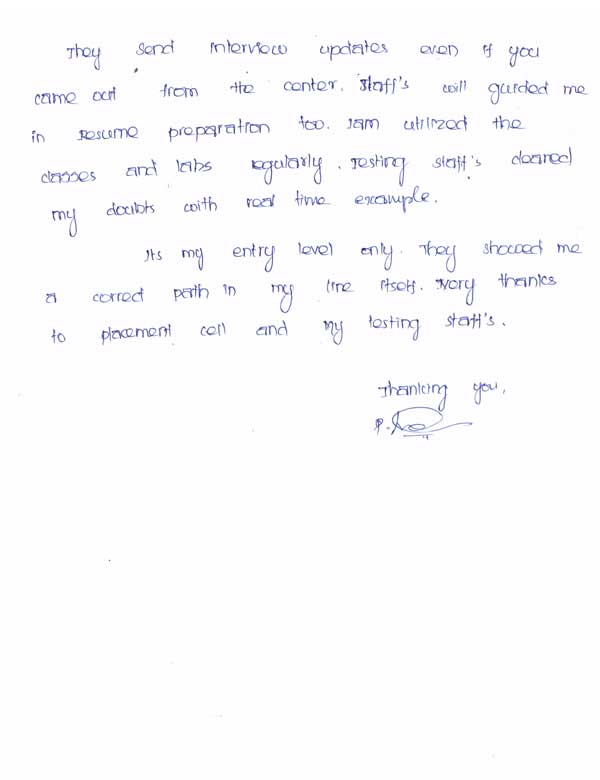 They send interview updates even if you
came out from the center. Staff's will guided me
in resume preparation too. Iam utilized the
classes and labs regularly. Testing staff's cleared
my doubts with real time example.
Its my entry level only. They showed me
a correct path in my line itself. Very thanks
to placement cell and my testing staff's.
Thanking you,
P.